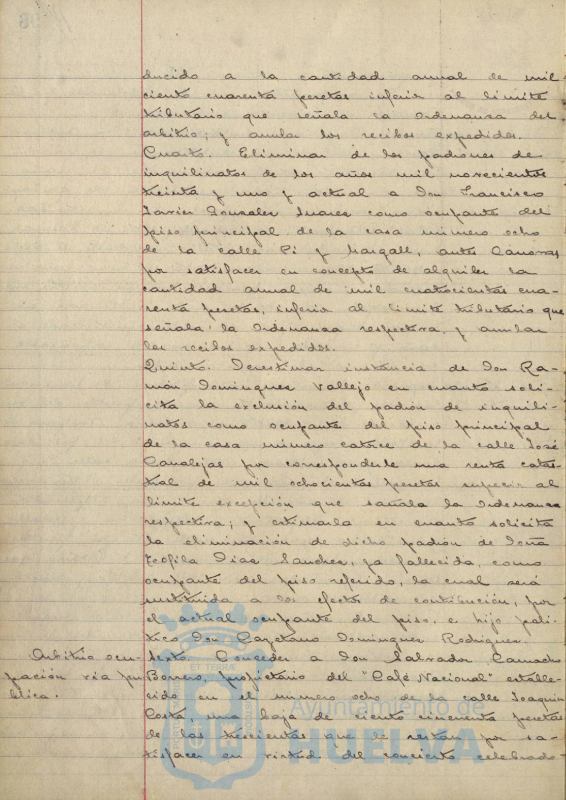 ducido a la cantidad anual de mil
ciento cuarenta pesetas inferior al limite
tributario que señala la Ordenanza del
arbitrio; y anular los recibos expedidos.
Cuarto. Eliminar de los padrones de
inquilinatos de los años mil novecientos
treinta y uno y actual a Don Francisco
Javier Gonzalez Suarez como ocupante del
piso principal de la casa número ocho
de la calle Pi y Margall, antes Cánovas
por satisfacer en concepto de alquiler la
cantidad anual de mil cuatrocientas cua-
renta pesetas, inferior al limite tributario que
señala la Ordenanza respectiva, y anular
los recibos expedidos.
Quinto. Desestimar instancia de Don Ra-
món Dominguez Vallejo en cuanto soli-
cita la exclusión del padrón de inquili-
natos como ocupante del piso principal
de la casa número catorce de la calle José
Canalejas por corresponderle una renta catas-
tral de mil ochocientas pesetas superior al
limite excepción que señala la Ordenanza
respectiva; y estimarla en cuanto solicita
la eliminación de dicho padrón de Doña
Teofila Diaz Sanchez, ya fallecida, como
ocupante del piso referido, la cual será
sustituida a los efectos de contribución, por
el actual ocupante del piso, e hijo poli-
tico Don Cayetano Dominguez Rodriguez.
Arbitrio ocu-
pación vía pú
blica.
Sexto. Conceder a Don Salvador Camacho
Borrero, propietario del "Café Nacional" estable-
cido en el numero ocho de la calle Joaquin
Costa, una baja de ciento cincuenta pesetas
de las trescientas que le restan por sa-
tisfacer en virtud del concierto celebrado
Ayuntamiento de
HUELVA